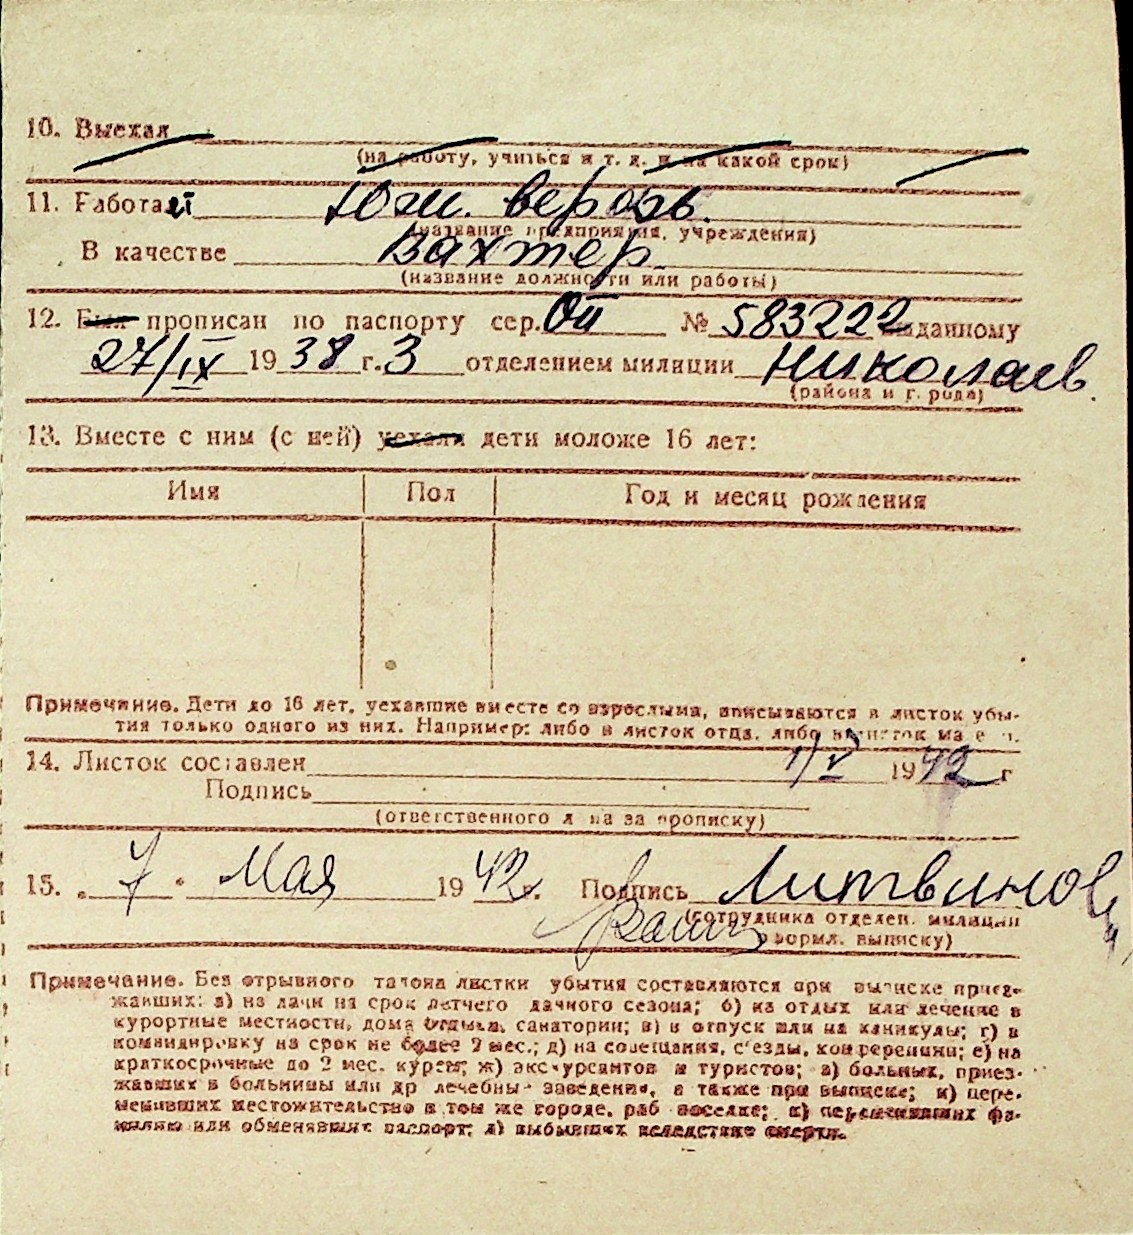 10. Выехал
(на работу, учиться и т. д. и на какой срок)
11. Работает Юж. верфь.
(название предприятия, учреждения)
В качестве Вахтер
(название должности или работы)
12. Был прописан по паспорту сер. № 583222 выданному
27/IX 1938 г. 3 отделением милиции Николаев.
(района и города)
13. Вместе с ним (с ней) уехали дети моложе 16 лет:
Имя Пол Год и месяц рождения
Примечание. Дети до 16 лет, уехавшие вместе со взрослыми, вписываются в листок убы-
тия только одного из них. Например: либо в листок отца, либо в листок ма е и.
14. Листок составлен 1/V 1942 г
Подпись
(ответственного л на за прописку)
15. 7 Мая 1942. Подпись Литвинов
(сотрудника отделен. милиции
формл. выписку)
Примечание. Без отрывного талона листки убытия составляются при выписке приез-
жавших: а) на дачи на срок летнего дачного сезона; б) на отдых или лечение в
курортные местности, дома отдыха, санатории; в) в отпуск или на каникулы; г) в
командировку на срок не более 2 мес.; д) на совещания, с'езды, конференции; е) на
краткосрочные до 2 мес. курсы; ж) экскурсантов и туристов; з) больных, приез-
жавших в больницы или др лечебны заведения, а также при выписке; и) пере-
менивших местожительство в том же городе, раб поселке; к) переменивших фа-
милию или обменявших паспорт; л) выбывших вследствие смерти.